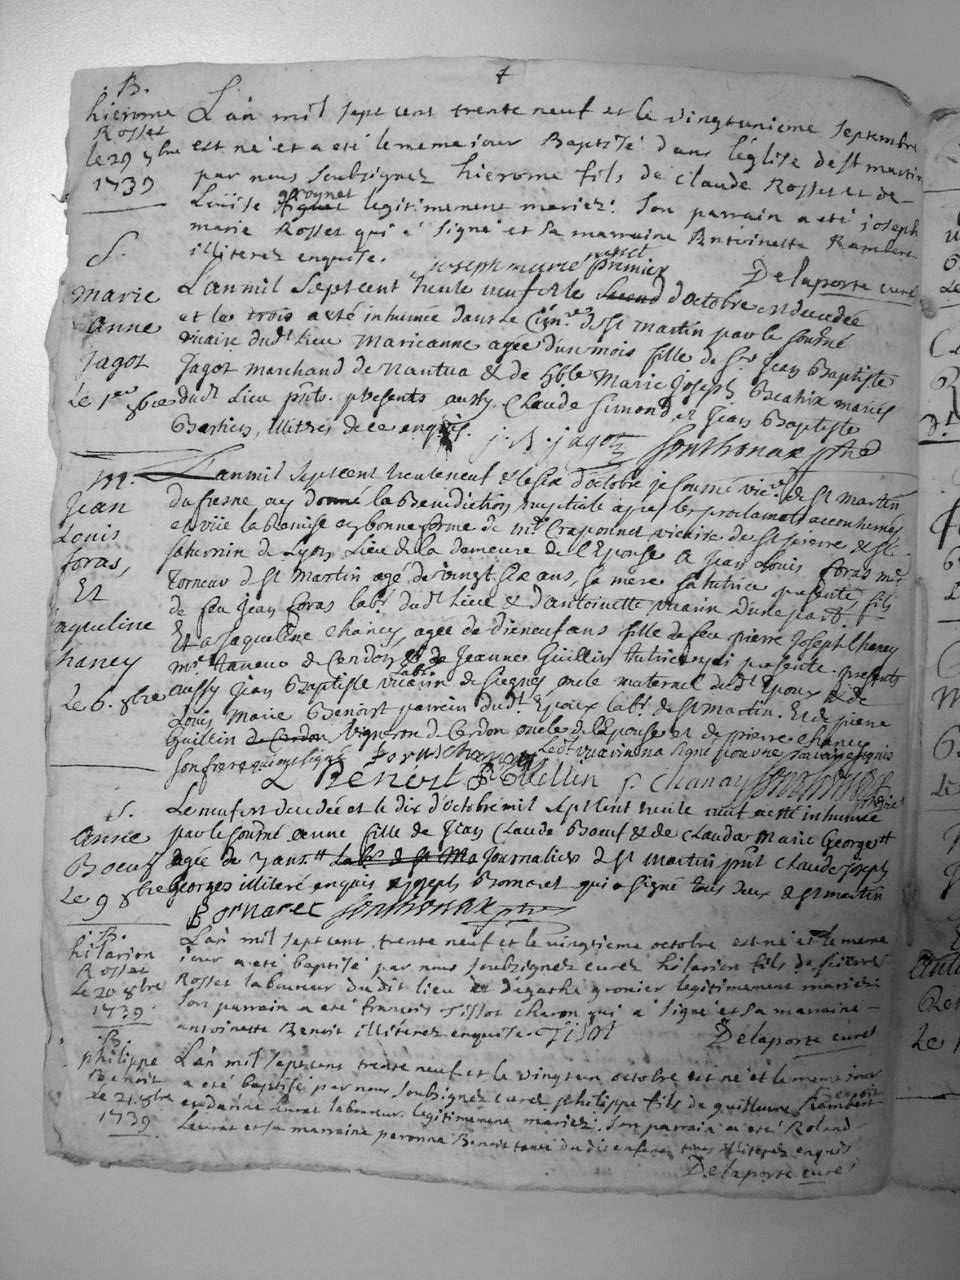 B.
hierome
Rosset
le 29 7bre
1739
L'an mil sept cent trente neuf et le vingtunieme septembre
est né et a eté le meme iour Baptisé dans l'église de st martin
par nous soubsignez hierome fils de claude Rosset et de
Loüise groynet legitimement mariez: son parrain a eté joseph
marie Rosset qui a signé et sa marraine Antoinette Rambert
illiterez enquise. joseph marie Rosset Delaporte curé
S.
Marie
anne
Jagot
Le 1er 8bre
L'an mil sept cent trente neuf et le premier d'octobre est decedée
et le trois a eté inhumée dans le Cim.re de st Martin par le sousné
vicaire dudt lieu Marieanne agée d'un mois fille de sr Jean Baptiste
Jagot marchand de Nantua & de hble Marie Joseph Beatrix mariés
dudt Lieu pnts. presents aussy Claude Simond et Jean Baptiste
Barbier, illitrés de ce enquis. j. B. jagot Sonthonax ptre
M.
Jean
Louis
foras,
Et
jaqueline
chaney
Le 6. 8bre
L'an mil sept cent trente neuf et le six d'octobre je sousné vic.re de st martin
du fresne ay donné la Benediction nuptiale apres les proclamats accoutumés
et vüe la Remise en bonne forme de mr. Craponnet vicaire de st pierre & st
saturnin de Lyon, Lieu de la demeure de l'Epouse a Jean Louis foras me.
Torneur de St Martin agé de vingt six ans, sa mere sa tutrice presente, fils
de feu Jean foras labr. dudt Lieu & d'antoinette vuarin d'une part.
Et a Jaqueline Chaney, agée de dieneuf ans fille de feu pierre Joseph Chaney
mr. de Cerdon & de Jeanne Guillin tutrice aussi presente. presents
aussy Jean Baptiste vuarin labr. de oncle maternel dudt Epoux & de
Louis Marie Benoist parrein dudt Epoux labr. de st Martin. Et de pierre
Guillin vigneron de Cerdon oncle de l'Epouse et de pierre chaney
son frere qui ont signé foras Ledt vuarin na signé pour ne savoir enquis
L Benoit P Guellin P. Chanay Sonthonax
S.
Anne
Boeuf
Le 9 8bre
Le neuf est decedée et le dix d'octobre mil sept cent trente neuf a eté inhumée
par le sousné anne fille de Jean Claude Boeuf & de Clauda Marie George
agée de 3 ans Journalier de st martin pnt Claude Joseph
Georges illiteré enquis & Joseph Bornaret qui a signé tous deux de st martin
Bornarec Sonthonax ptre
B.
hilarion
Rosset
Le 20 8bre
1739
L'an mil sept cent trente neuf et le vingtieme octobre est né et le meme
iour a eté baptisé par nous soubsignez curez hilarion fils de
Rosset laboureur dudit lieu et d'agathe gronier legitimement mariez:
son parrain a eté francois Tissot charon qui a signé et sa marraine
antoinette Benoit illiterez enquise. Tisot Delaporte curé
B.
philippe
Benoit
le 21. 8bre
1739
L'an mil sept cent trente neuf et le vingtun octobre est né et le meme iour
a eté baptisé par nous soubsignez curez philippe fils de guillaume benoit
et laboureur legitimement mariez. son parrain a eté Roland
et sa marraine peronne Benoit tante dudit enfant tous illiterez enquis
Delaporte curé